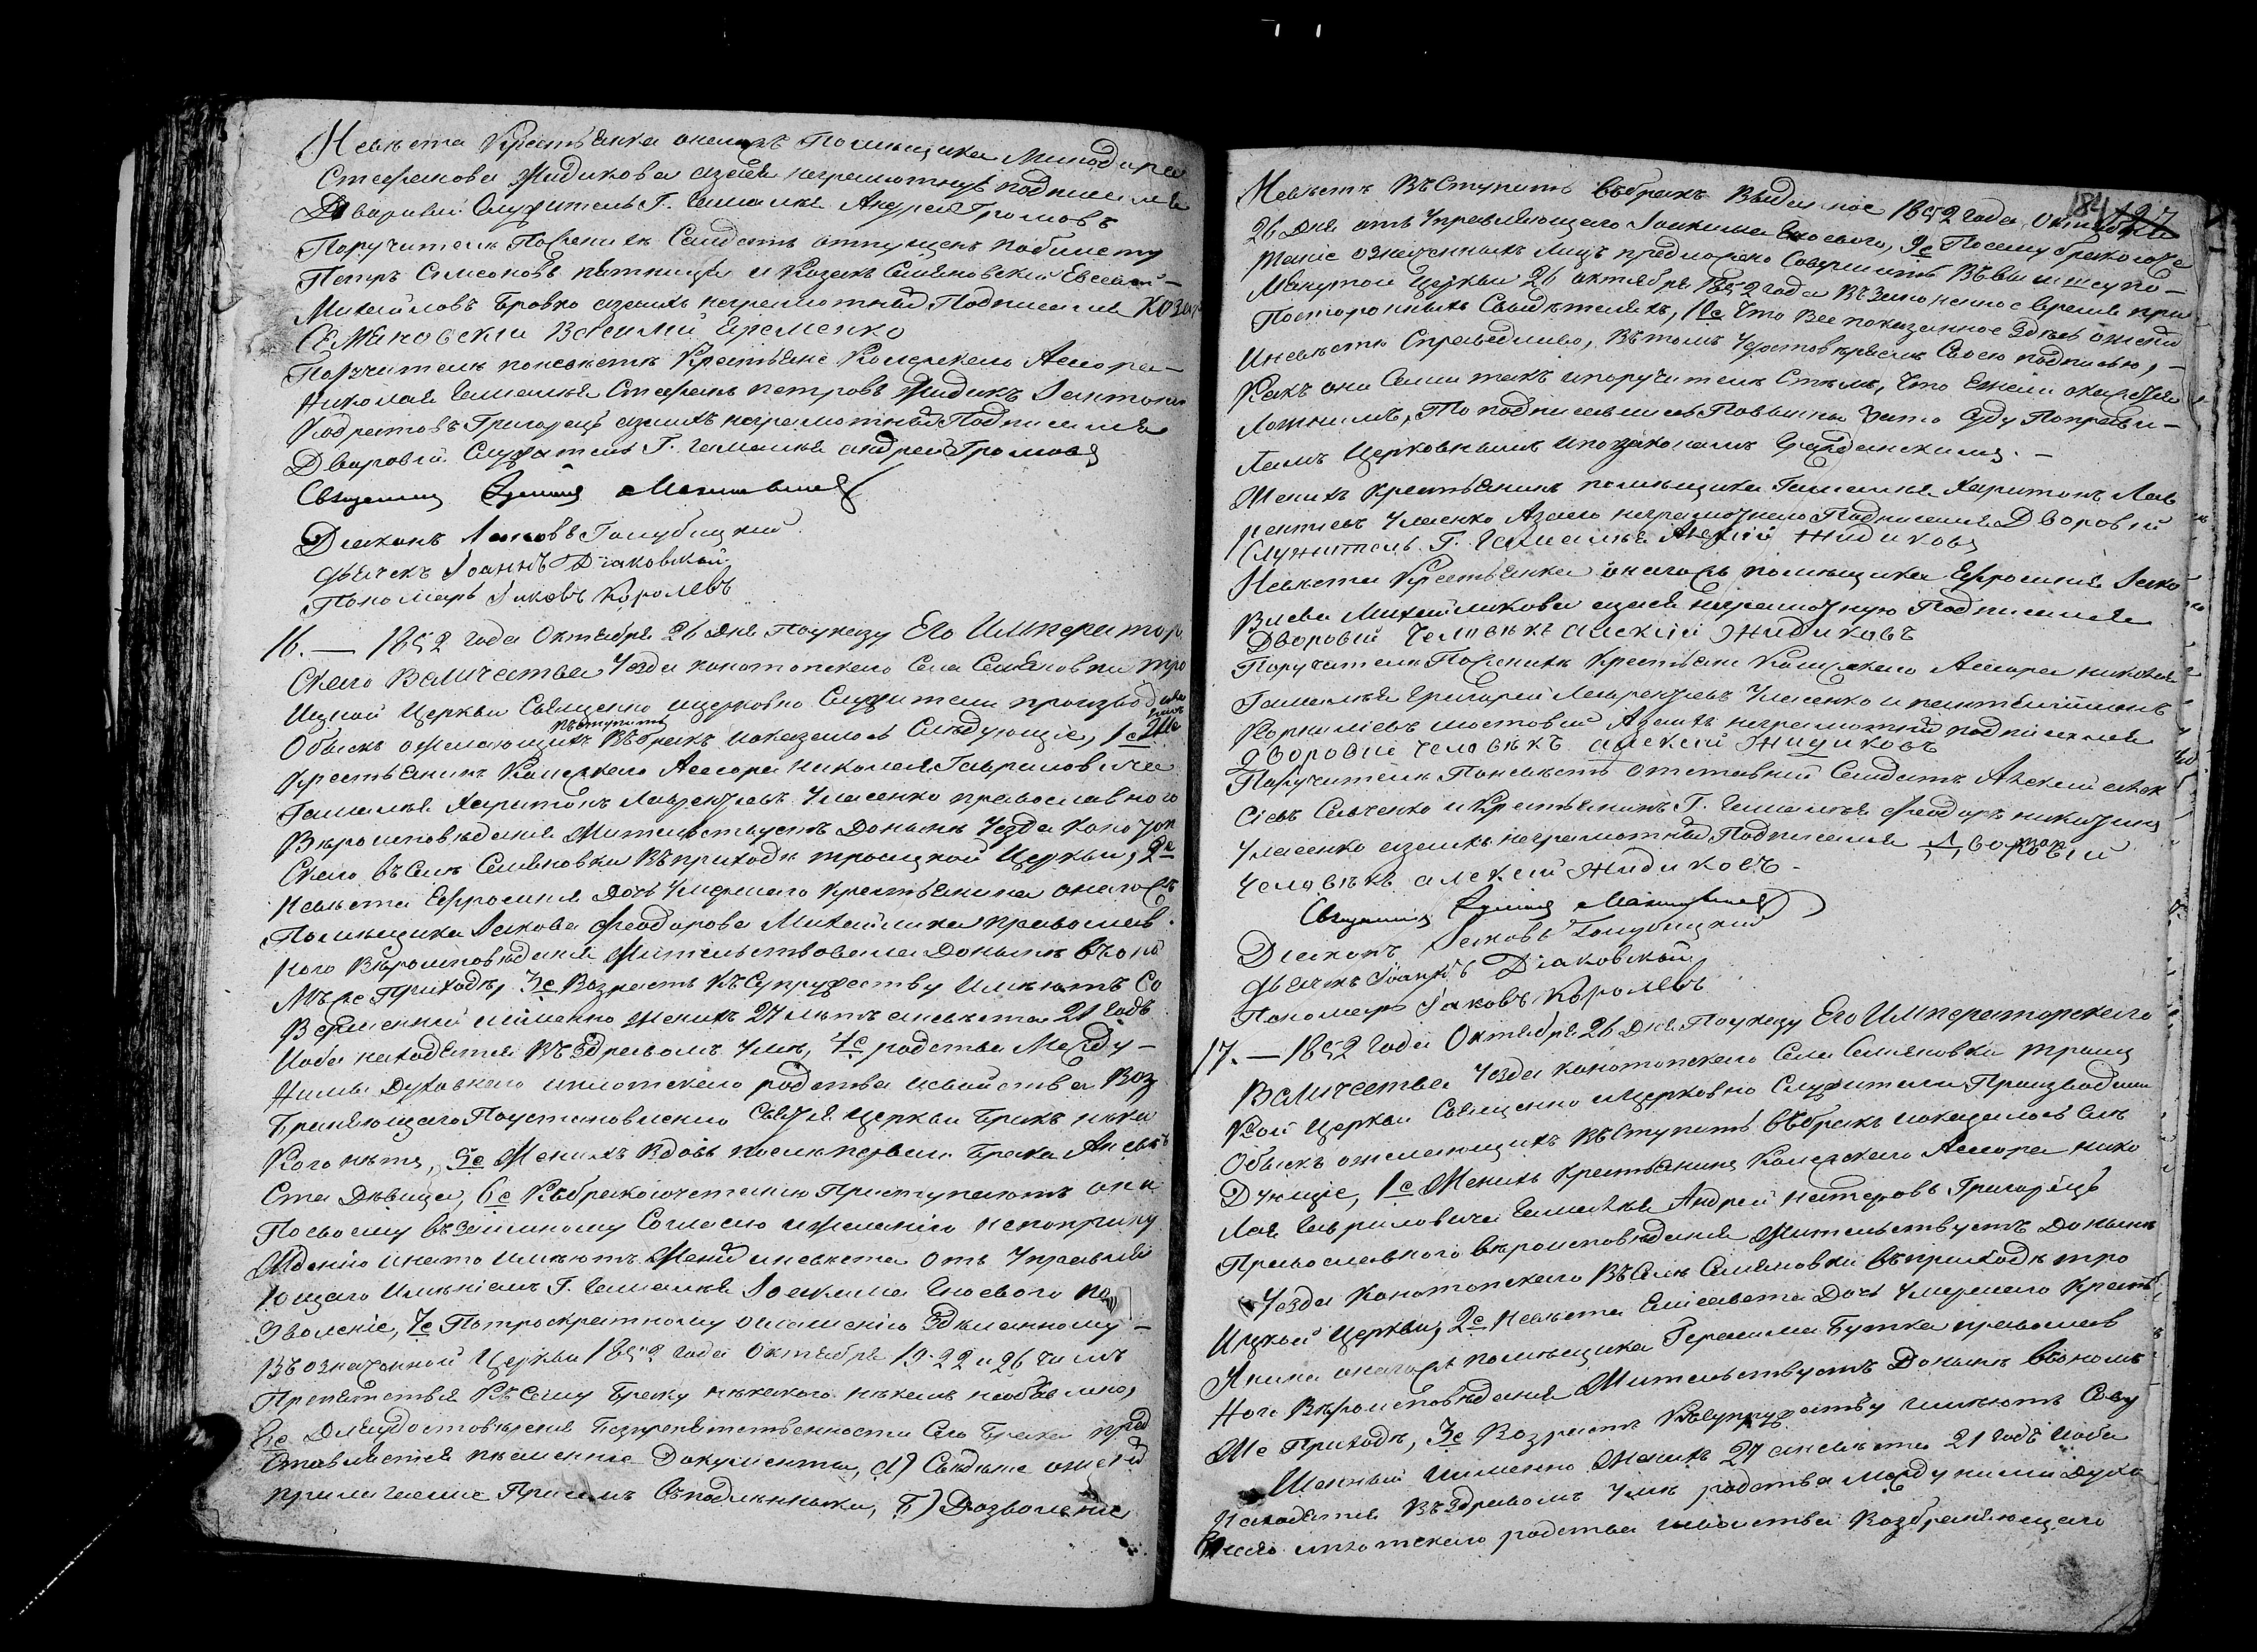 Невѣста Крестьянка онагожъ Помѣщика Минодира
Стефанова Жидикова азанея неграмотную подписался
Дворовый Служитель Г. Гамалѣя Андрей Громовъ
Поручители По Женихѣ Солдатъ отпущенъ побилету
Петръ Симеоновъ пятница и Козакъ Семяновский Евсевий
Михайловъ Бровко азанихъ неграмотныхъ Подписался Козакъ
Семяновски Василий Еременко
Поручители поневѣстѣ Крестьяне Колежскаго Асесора
Николая Гамалѣя Стефанъ петровъ Жидикъ
Кодратовъ Григорецъ азанихъ неграмотныхъ Подписался
Дворовый Служитель Г. Гамалѣя андрей Громовъ
Священникъ
Диаконъ Іаковъ Голубицкий
Дьячекъ Іоаннъ Діаковской
Пономарь Іаковъ Королевъ
16. — 1852 года Октября 26 дня По указу Его Император
Скаго Величества Уезда конотопскаго Села Семяновки тро
ицкой Церкви Священно ицерковно Служители производили
Обыскъ ожелающихъ вступить Въбракъ иоказалось Слѣдующіе, 1е Же
нихъ
Крестьянинъ Колежкаго Асесора николая Гавриловича
Гамалѣя Харитонъ Лаврентьевъ Уласенко православного
Вѣроисповѣдания Жительствуетъ Донынѣ Уезда Конотоп
Скаго въСелѣ Семяновки Въприходѣ троицкой Церкви, 2е
Невѣста Ефросиния дочь Умершаго Крестьянина онагожъ
Помѣщика Іакова Феодорова Михайлика православ
ного Вѣроисповѣдания Жительствовала Донынѣ въоно
мъже Приходѣ, 3е Возрастъ КъСупружеству Имѣютъ Со
Вершенный иименно женихъ 27 лѣтъ аневѣста 21 годъ
Иоба находятся Въздравомъ Умѣ, 4е родства Между
Ними Духовнаго иплотскаго родства исвойства Воз
Браняющаго Поустановлению Святыя Церкви Бракъ ника
Кого нѣтъ, 5е Женихъ вдовъ послѣ перваго Брака Аневѣ
Ста Дѣвица, 6е Къбракосочетанию Приступаютъ они
Посвоему Взаимному Согласию ижеланию непоприну
Ждению инато имѣютъ Женихъ иневѣста Отъ Управля
Ющаго Имѣниемъ Г. Гамалѣя Іоакима Еноевого по
Зволеніе, 7е Потроекратному оглашению Здѣланному
Въозначенной Церкви 1852 года Октября 19. 22 и 26 Чиселъ
Препятствия Къ Сему Браку никакого никѣмъ необъявлено,
8е Дляудостовѣрения Безпрепятственности Сего Брака пред
Ставляются писменные Документы, а) Сведение о женихѣ
прилагаемие При семъ въподлинникѣ, Б) Дозволение
184 127
Невѣстѣ Въступить Въбракъ Выданное 1852 года Октября
26 дня отъ Управляющаго Іоакима Еноевого, 9е Посему бракосоче
таніе означенныхъ Лицъ предпо­ложено Совершить Въвышеупо-
Мянутой Церкви 26 октября 1852 года Въ Законное время при
Постороннихъ Свидѣтеляхъ, 10е Что Все показанное Здѣсь ожених
Иневѣстѣ Справедливо, Вътомъ Удостовѣряемъ Своею подписью,
Какъ они Сами такъ ипоручители Стѣмъ, Что Ежели окажется
Ложнимъ, То подписавшиеся Повынны Зато Суду Поправи-
ламъ Церковнымъ ипозаконамъ Гражданскимъ. —
Женихъ Крестьянинъ помѣщика Гамалѣя Харитонъ Лав
рентиевъ Уласенко Азанего неграмотнаго Подписался Дворовій
Служитель Г. Гамалѣя Алексій Жидиковъ
Невѣста Крестьянка онагожъ помѣщика Ефросиния Іако
Влева Михайликова азанея неграмотную Подписался
Дворовій Человѣкъ алексій Жидиковъ
Поручители По Женихѣ Крестьяни Колежкаго Асесора николая
Гамалѣя Григорей Лаврентьевъ Уласенко и
Корнилиевъ мостовий Азанихъ неграмотныхъ подписался
дворовие человѣкъ алексий Жидиковъ
Поручители Поневѣстѣ отставний Солдатъ Алексий алек
сіевъ Савченко и Крестьянинъ Г. Гамалѣя Феодоръ никитинъ
Уласенко азанихъ неграмотныхъ Подписался Дворовій
Человѣкъ алексей Жидиковъ
Священникъ
Диаконъ Іаковъ Голубицкий
Дьячекъ Іоаннъ Діаковской
Пономарь Іаковъ Королевъ
17. — 1852 года Октября 26 Дня Поуказу Его Императорскаго
Величества Уезда конотопскаго Села Семяновки троиц
Кой Церкви Священно ицерковно Служители Производили
Обыскъ ожелающихъ Въступить Въбракъ иоказалось Слѣ
Дующіе, 1е Женихъ Крестьянинъ Колежскаго Асесора нико
лая Гавриловича Гамалѣя Андрей нестеровъ Григорецъ
Православного Вѣроисповѣдания Жительствуетъ Донынѣ
Уезда Конотопскаго ВъСелѣ Семяновки Въприходѣ тро
Ицкой Церкви, 2е Невѣста Елисавета Дочь Умершаго Кресть
Янина онагожъ помѣщика Герасима Бутка православ
Ного Вѣроисповѣдания Жительствуетъ Донынѣ Воономъ
Же Приходѣ, 3е Возрастъ Късупружеству имѣютъ Сову
Шенный иименно Женихъ 27 аневѣста 21 годъ Иоба
Находятся Въздравомъ Умѣ родства между ними Духо
Внаго иплотскаго родства исвойства Возбраняющаго